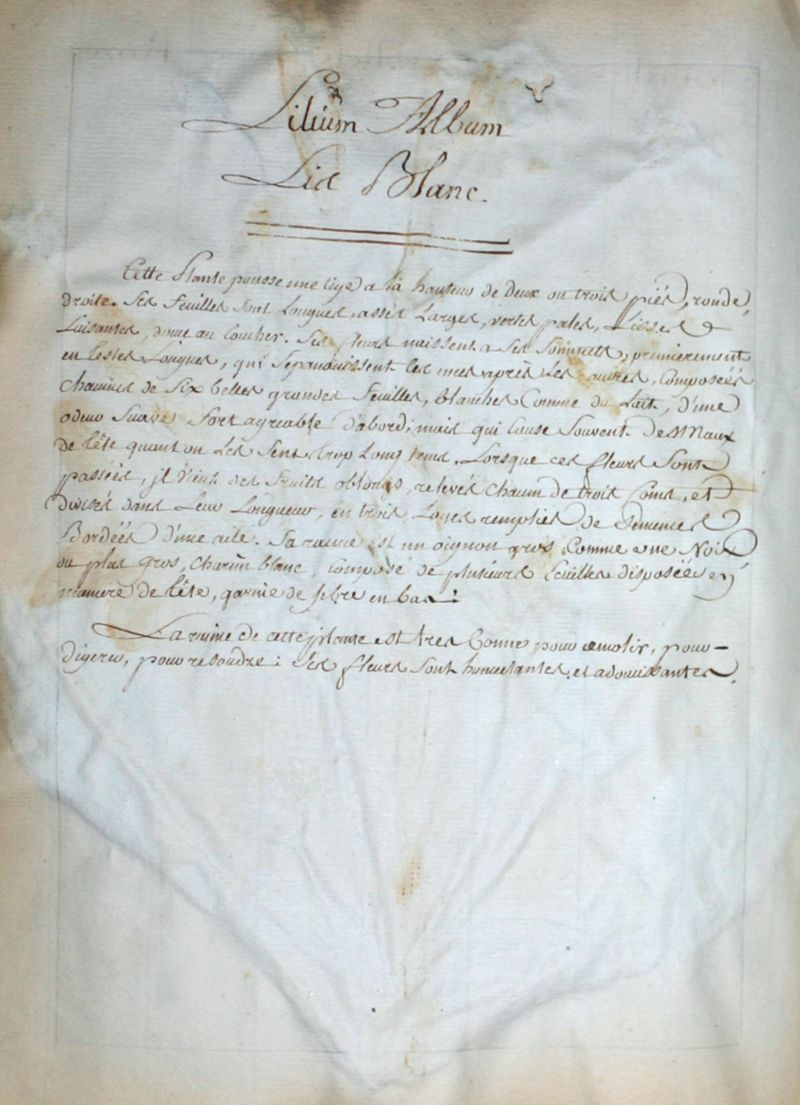 Lilium Album
Lis Blanc.
Cette Plante pousse une tige a la hauteur de deux ou trois piés, ronde,
droite. Ses Feuilles sont Longues, assés Larges, vertes pales, Lisses &
Luisantes, douce au toucher. Ses fleurs naissent a Ses Sommets, premierement
en testes Longues, qui Sepanouissent les unes aprés Les autres, Composées
chacune de Six belles grandes Feuilles, blanches Comme du Lait, d'une
odeur Suave, Fort agreable D'abord, mais qui Cause Souvent Des Maux
de tête quant on Les Sent trop Long tems. Lorsque ces fleurs Sont
passées, jl Vient des fruits oblongs, relevés chacun de trois Coins, et
divisés dans Leur Longueur, en trois Loges remplies de Semences
Bordées d'une aile. Sa racine est un oignon gros Comme une Noix
ou plus gros, charnu blanc, composé de plusieurs Ecuilles disposées en
maniere de tête, garnie de fibre en bas :
La racine de cette plante est tres bonne pour amolir, pour
digerer, pour resoudre : Les fleurs sont humectantes, et adoucissantes.